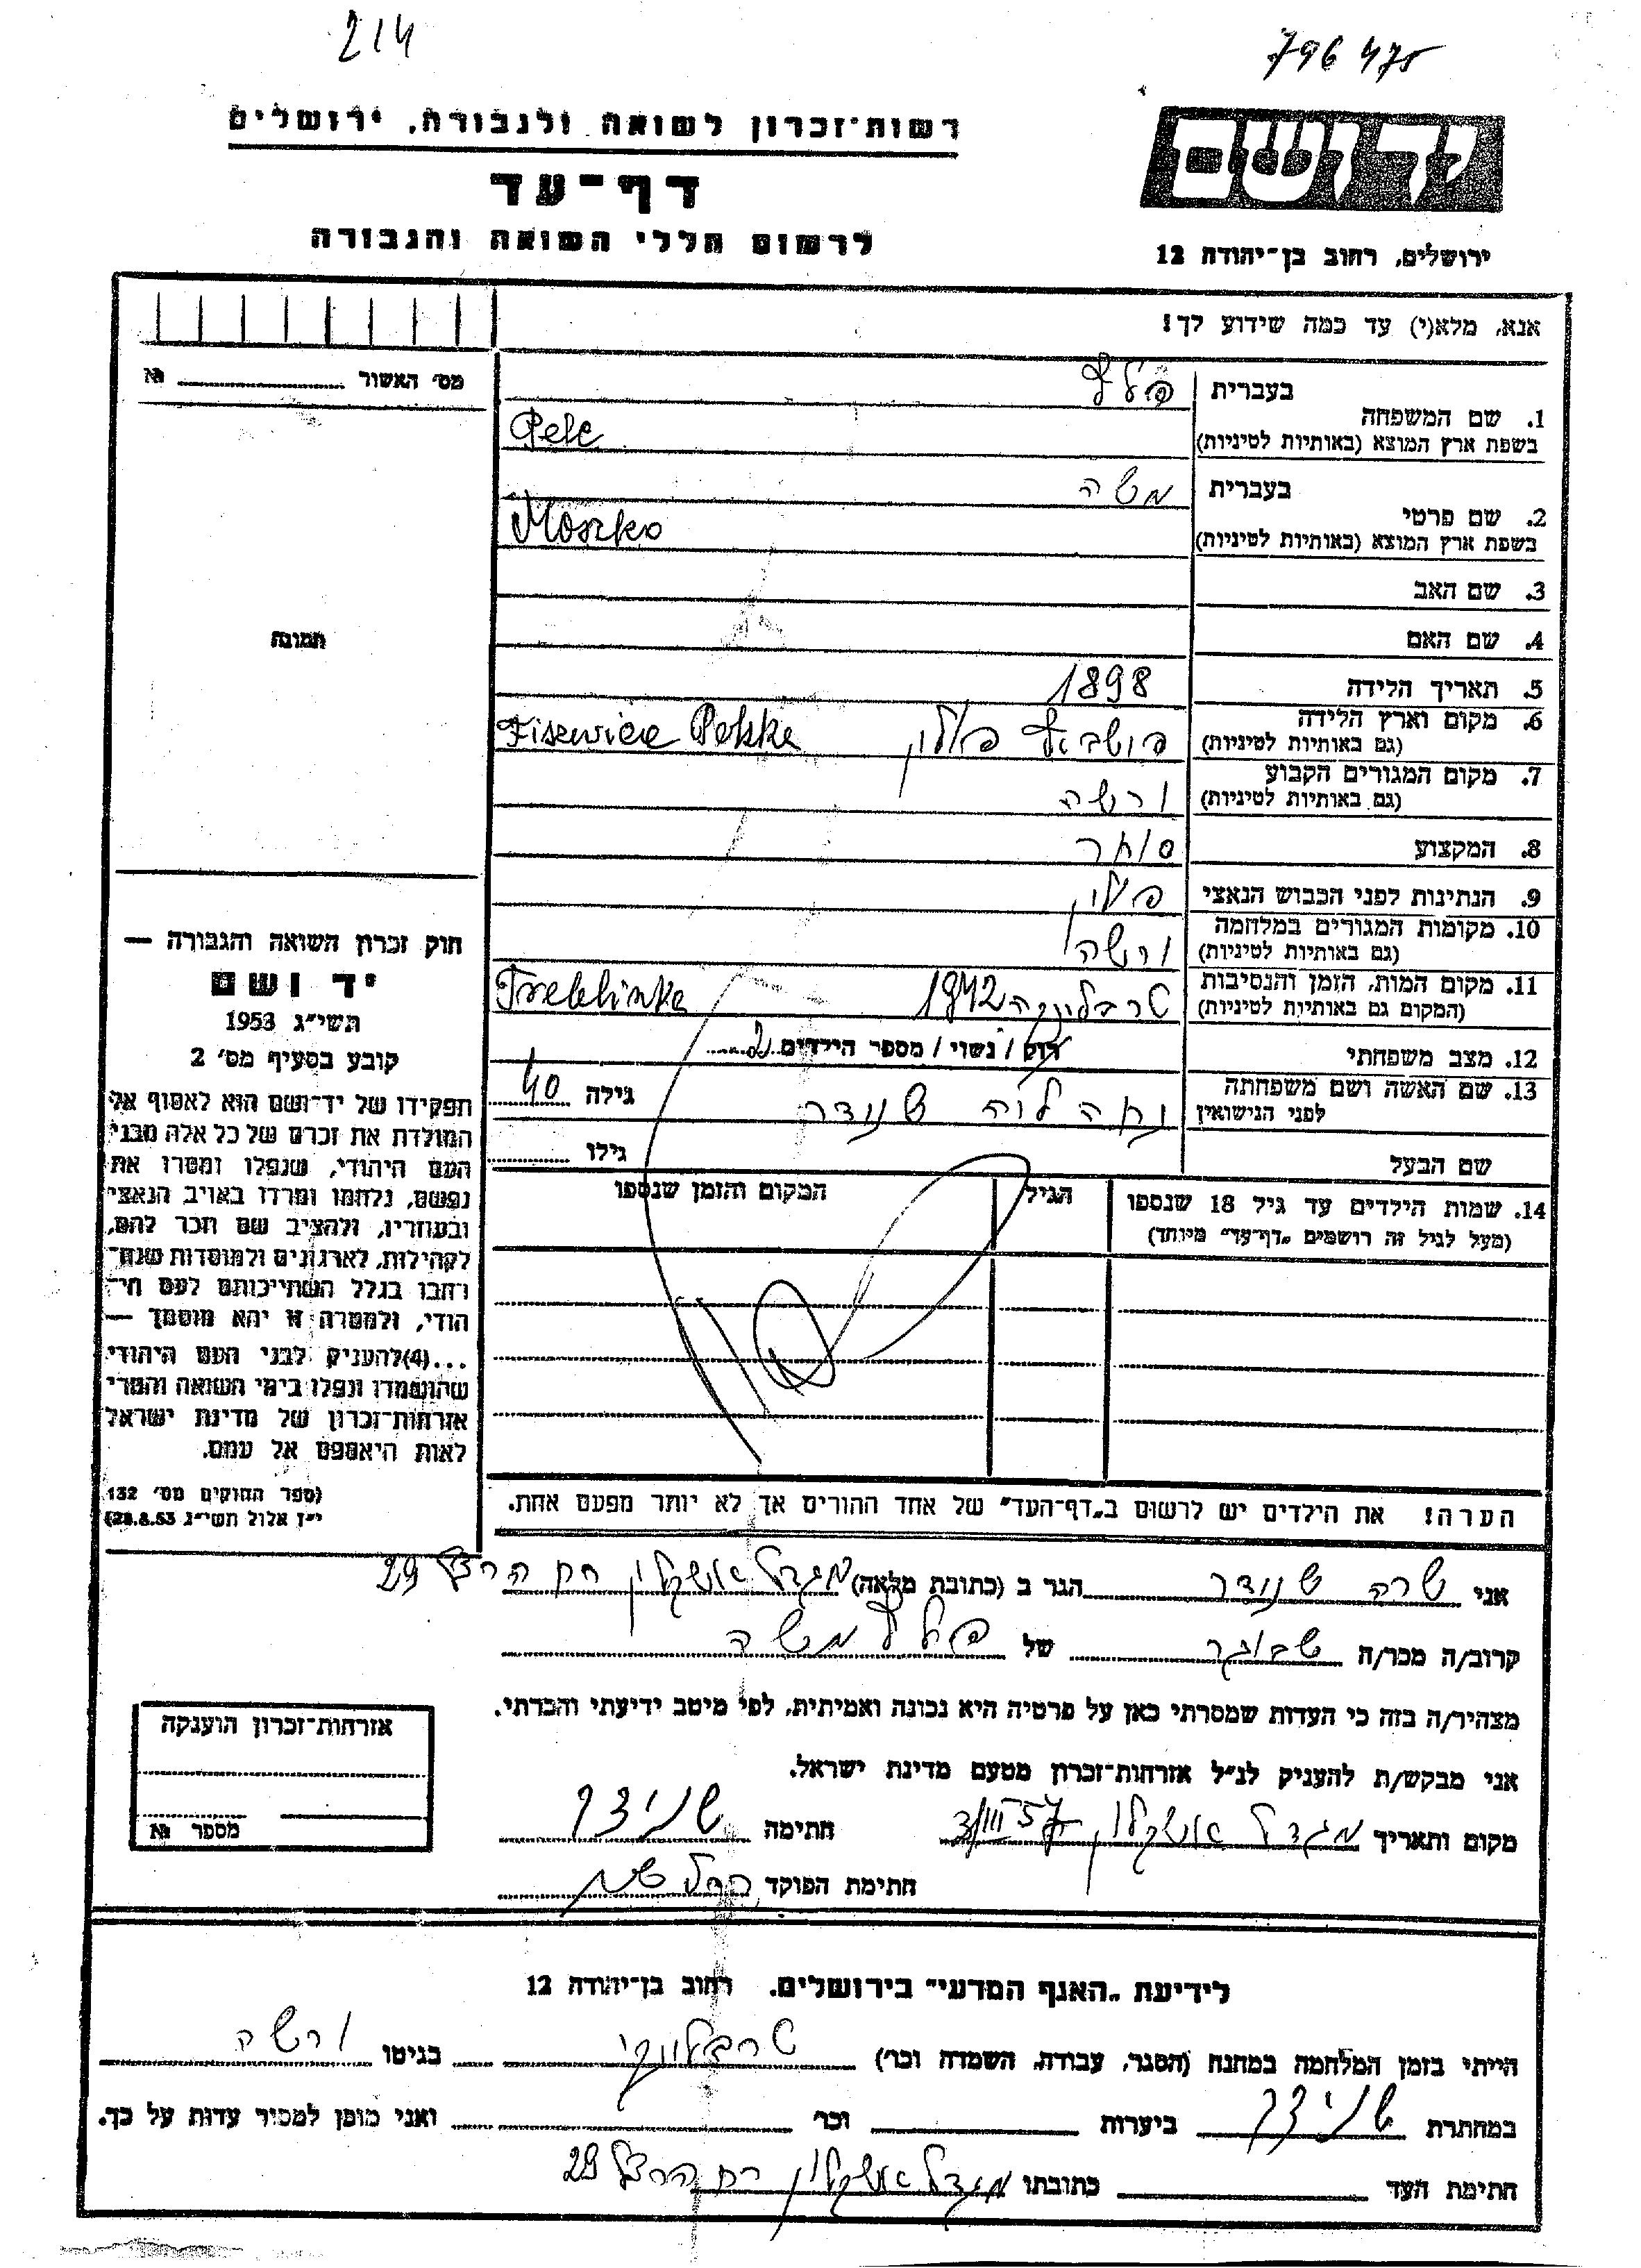 214
796 475
רשות־זכרון לשואה ולגבורה, ירושלים
דף־עד
לרשום חללי השואה והגבורה
יד ושם
ירושלים, רחוב בן־יהודה 12
אנא, מלא(י) עד כמה שידוע לך!
מס׳ האשור № 
בעברית פלץ
1. שם המשפחה
בשפת ארץ המוצא (באותיות לטיניות) Pelc
בעברית משה
2. שם פרטי
בשפת ארץ המוצא (באותיות לטיניות) Moszko
3. שם האב
4. שם האם
תמונה
5. תאריך הלידה 1898
6. מקום וארץ הלידה
(גם באותיות לטיניות) פולין Polska
7. מקום המגורים הקבוע
(גם באותיות לטיניות) ורשה
8. המקצוע סוחר
9. הנתינות לפני הכבוש הנאצי פולין
10. מקומות המגורים במלחמה
(גם באותיות לטיניות) ורשה
11. מקום המות, הזמן והנסיבות
(המקום גם באותיות לטיניות) טרבלינקה 1942 Treblinka
12. מצב משפחתי רוק / נשוי / מספר הילדים 2
13. שם האשה ושם משפחתה
לפני הנישואין שנידר גילה 40
שם הבעל גילו
14. שמות הילדים עד גיל 18 שנספו הגיל המקום והזמן שנספו
(מעל לגיל זה רושמים „דף־עד״ מיוחד)
הערה! את הילדים יש לרשום ב„דף־העד״ של אחד ההורים אך לא יותר מפעם אחת.
חוק זכרון השואה והגבורה —
יד ושם
תשי״ג 1953
קובע בסעיף מס׳ 2
תפקידו של יד־ושם הוא לאסוף אל
המולדת את זכרם של כל אלה מבני
העם היהודי, שנפלו ומסרו את
נפשם, נלחמו ומרדו באויב הנאצי
ובעוזריו, ולהציב שם וזכר להם,
לקהילות, לארגונים ולמוסדות שנח־
רבו בגלל השתייכותם לעם הי־
הודי, ולמטרה זו יהא מוסמך —
...(4)להעניק לבני העם היהודי
שהושמדו ונפלו בימי השואה והמרי
אזרחות־זכרון של מדינת ישראל
לאות היאספם אל עמם.
(ספר החוקים מס׳ 132
י״ז אלול תשי״ג 28.8.53)
אני שרה שנידר הגר ב (כתובת מלאה) מגדל אשקלון רח הרצל 29
קרוב/ה מכר/ה של פלץ משה
מצהיר/ה בזה כי העדות שמסרתי כאן על פרטיה היא נכונה ואמיתית, לפי מיטב ידיעתי והכרתי.
אני מבקש/ת להעניק לנ״ל אזרחות־זכרון מטעם מדינת ישראל.
מקום ותאריך מגדל אשקלון 3/III 57 חתימה שנידר
חתימת הפוקד
אזרחות־זכרון הוענקה
מספר №
לידיעת „האגף המדעי״ בירושלים. רחוב בן־יהודה 12
הייתי בזמן המלחמה במחנה (הסגר, עבודה, השמדה וכר׳) טרבלינקי בגיטו ורשה
במחתרת שנידר ביערות וכר׳ ואני מוכן למסור עדות על כך.
חתימת העד כתובתו מגדל אשקלון רח הרצל 29